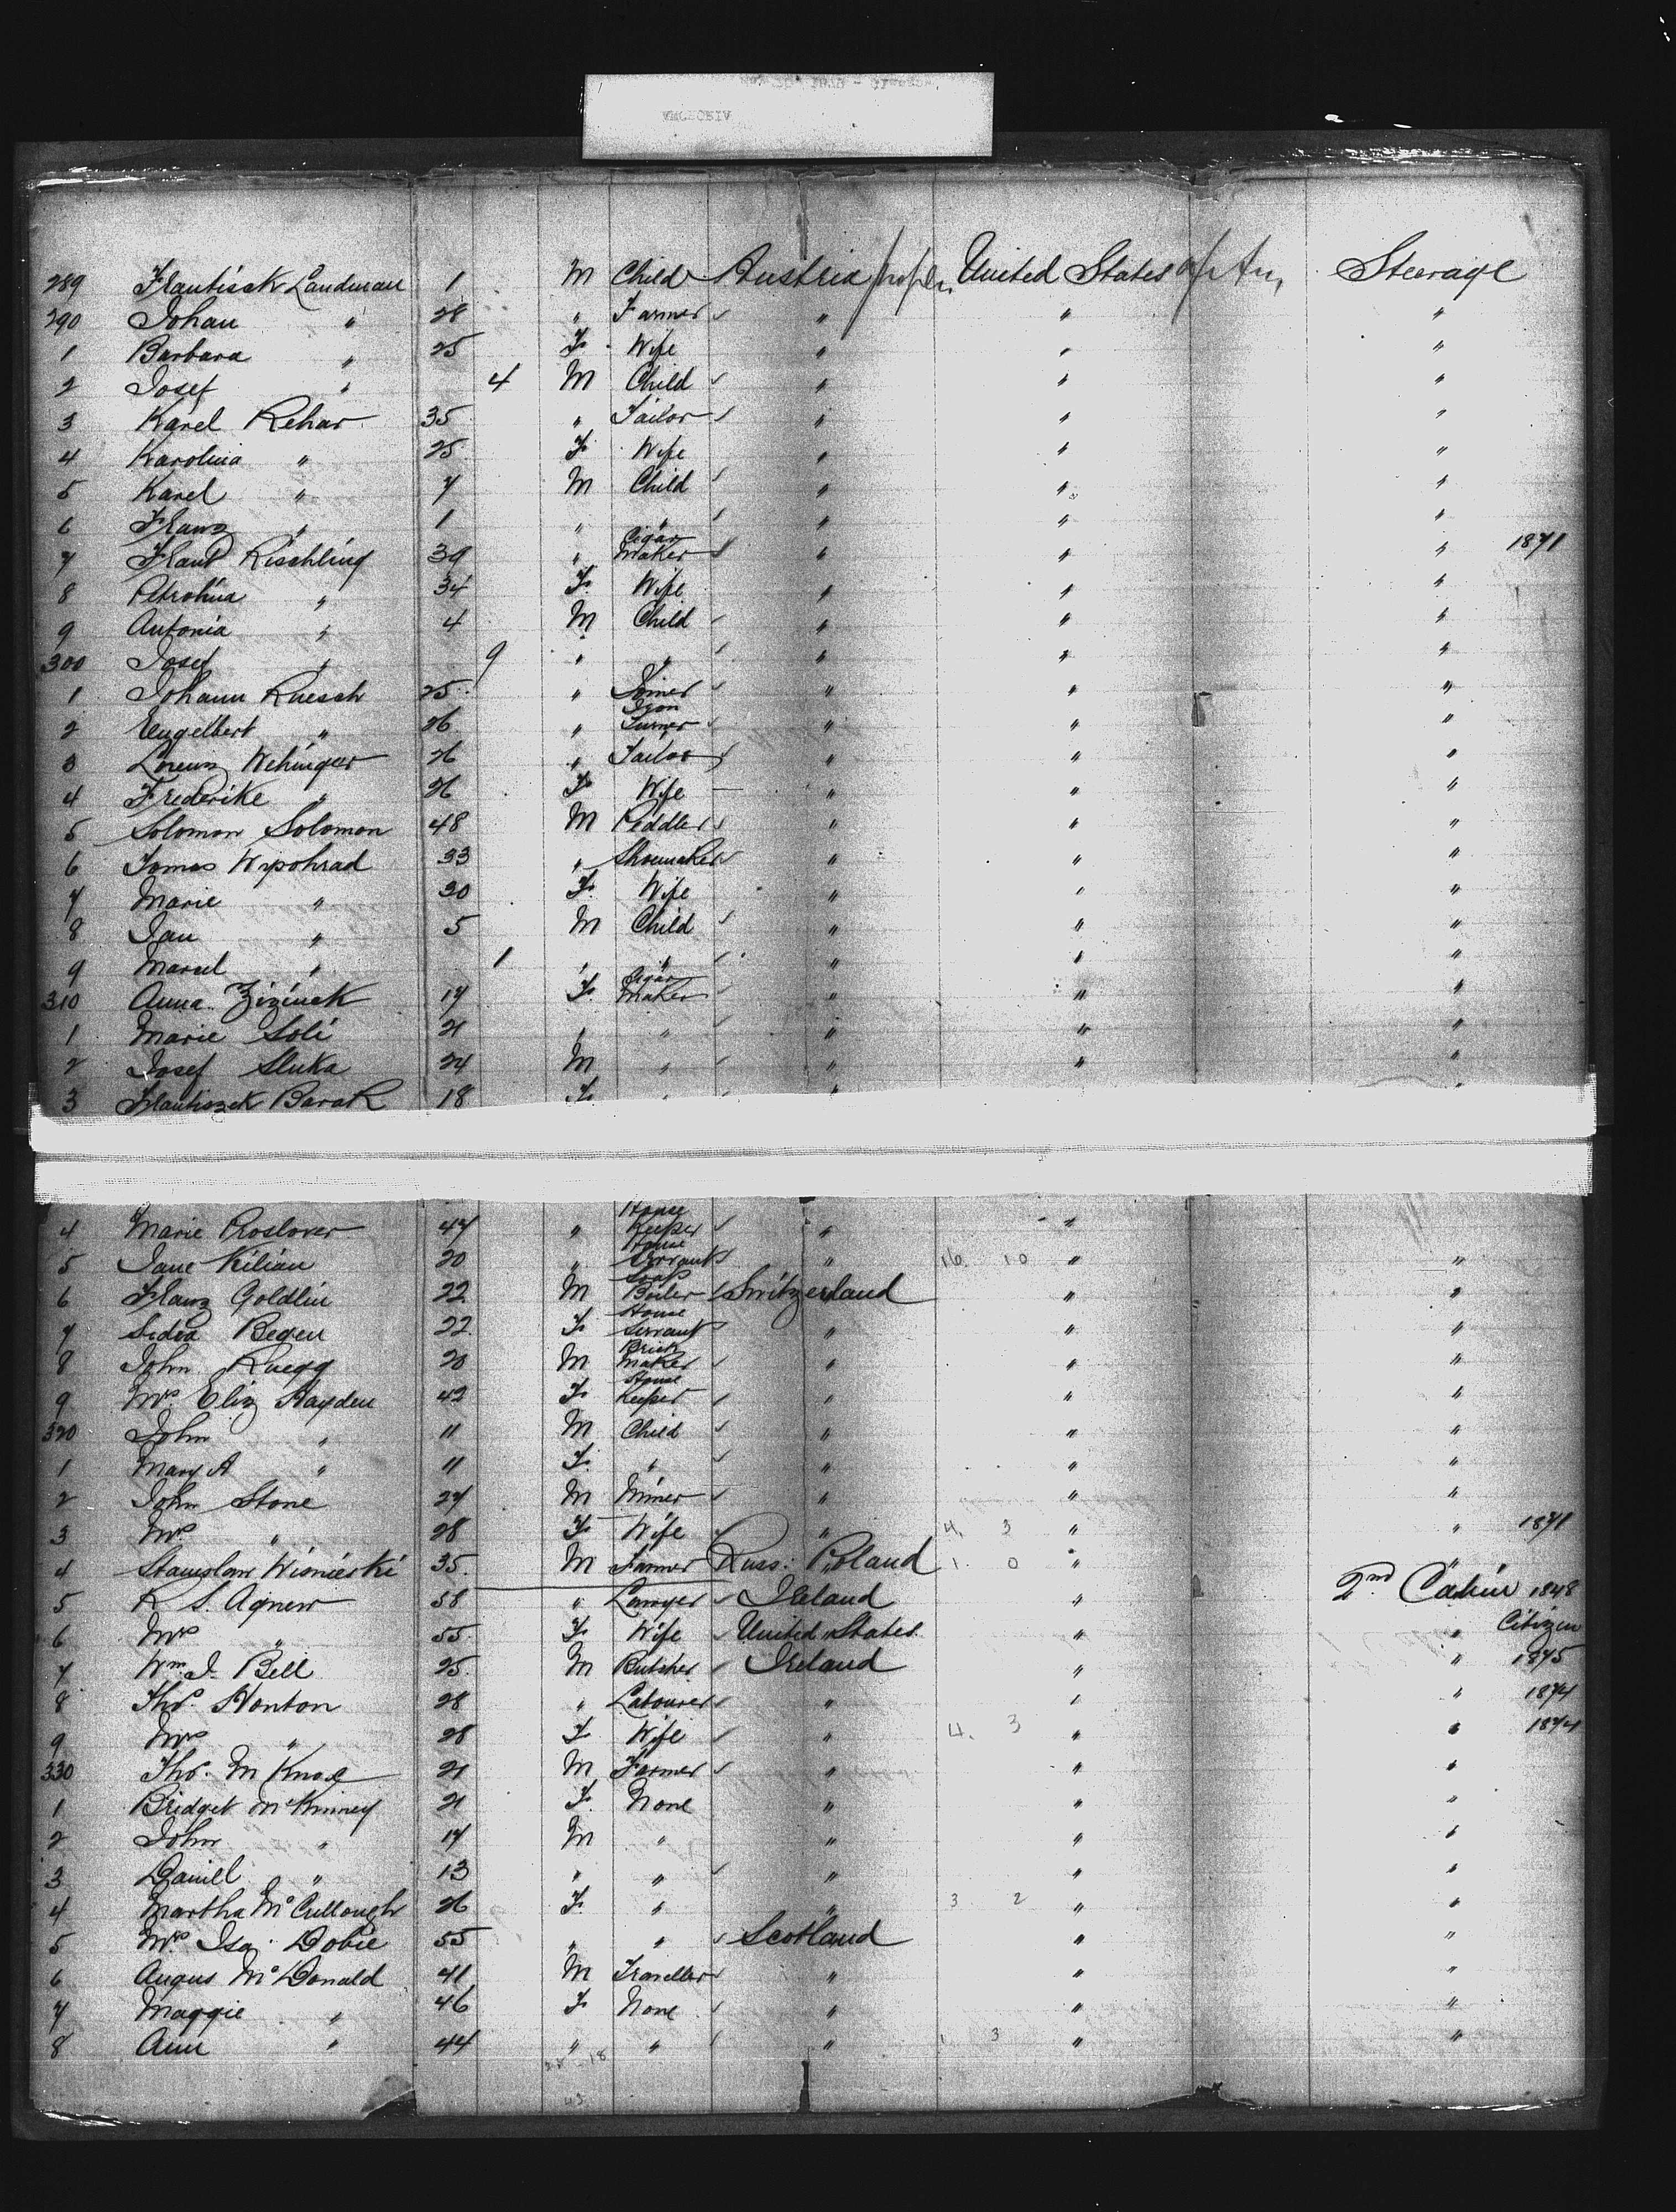 289 Frantisek Landman 1 M Child Austria United States Steerage
290 Johan " 28 " Farmer " " "
1 Barbara " 25 F Wife " " "
2 Josef " 4 M Child " " "
3 Karel Rehar 35 " Tailor " " "
4 Karolina " 25 F Wife " " "
5 Karel " 7 M Child " " "
6 Franz " 1 " " " " "
7 Franz Rischling 39 " Cigar Maker " " " 1871
8 Petrolina " 34 F Wife " " "
9 Antonia " 4 M Child " " "
300 Josef " 9 " " " " "
1 Johann Ruesch 25 " Joiner " " "
2 Engelbert " 26 " Iron Turner " " "
3 Lorenz Wehinger 26 " Tailor " " "
4 Frederike " 26 F Wife " " "
5 Solomon Solomon 48 M Peddler " " "
6 Tomas Wipohrad 33 " Shoemaker " " "
7 Marie " 30 F Wife " " "
8 Jan " 5 M Child " " "
9 Marcel " 1 " " " " "
310 Anna Zizinek 17 F Cigar Maker " " "
1 Marie Soli 21 " " " " "
2 Josef Sluka 24 M " " " "
3 Frantiszek Barak 18 F "
4 Marie Roslover 47 " House Keeper " "
5 Jane Kilian 20 " House Servant " 16 10 " "
6 Franz Goldlin 22 M Soap Boiler Switzerland " "
7 Sedia Begen 22 F House Servant " " "
8 John Ruegg 20 M Brick Maker " " "
9 Mrs Eliz Hayden 42 F House Keeper " " "
320 John " 11 M Child " " "
1 Mary A " 11 F " " " "
2 John Stone 27 M Miner " " "
3 Mrs " 28 F Wife " 4. 3 " " 1871
4 Stanislaw Wisnieski 35 M Farmer Russ: Poland 1. 0 " "
5 R S. Agnew 58 " Lawyer Ireland " 2nd Cabin 1848
6 Mrs " 55 F Wife United States " " Citizen
7 Wm J. Bell 25 M Butcher Ireland " " 1875
8 Thos. Honton 28 " Labourer " " " 1874
9 Mrs " 28 F Wife " 4. 3 " " 1874
330 Thos. M Knox 21 M Farmer " " "
1 Bridget McKinney 21 F None " " "
2 John " 17 M " " " "
3 Daniel " 13 " " " " "
4 Martha McCullough 26 F " " 3 2 " "
5 Mrs Isa. Dobie 55 " " Scotland " "
6 Angus McDonald 41 M Traveller " " "
7 Maggie " 46 F None " " "
8 Ann " 44 " " " 1 3 " "